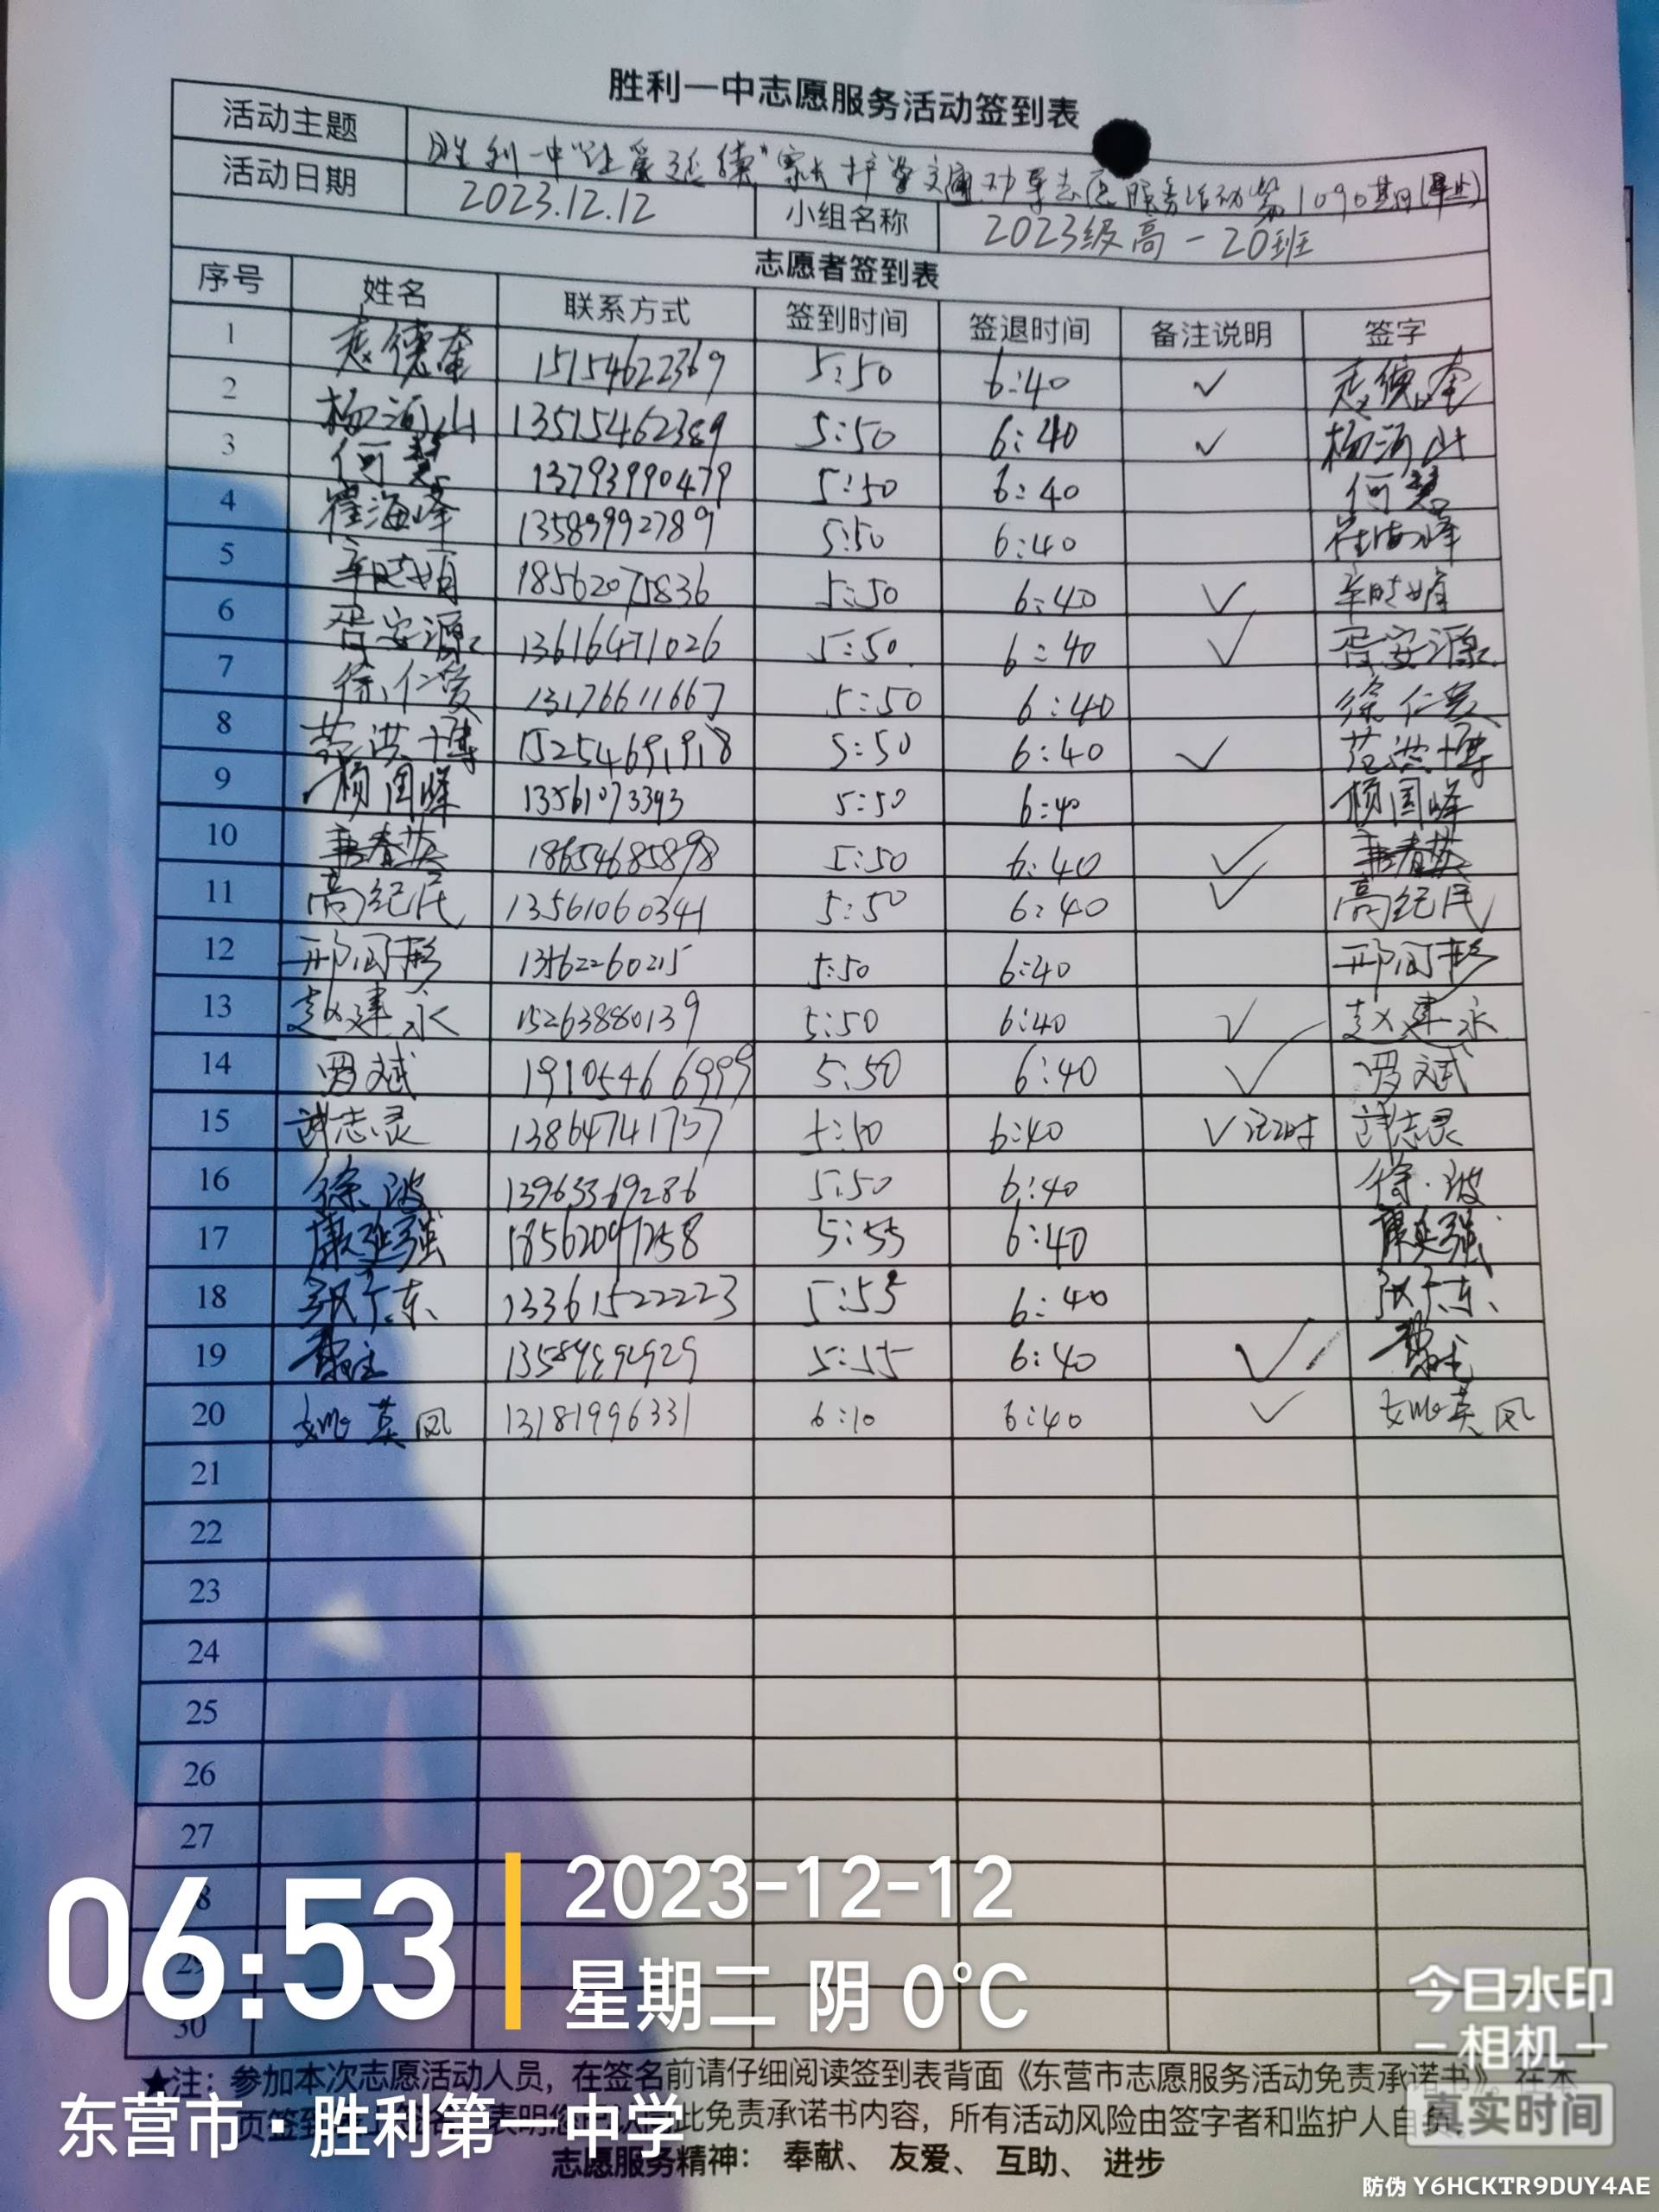 胜利一中志愿服务活动签到表
活动主题 胜利一中"让爱延续"家长护学交通劝导志愿服务活动第1090期(早上)
活动日期 2023.12.12 小组名称 2023级高一20班
志愿者签到表
序号 姓名 联系方式 签到时间 签退时间 备注说明 签字
1 德奎 15154622369 5:50 6:40 ✓ 德奎
2 杨河山 13515462389 5:50 6:40 ✓ 杨河山
3 何慧 13793990479 5:50 6:40 何慧
4 崔海峰 13589992789 5:50 6:40 崔海峰
5 辛晓娟 18562075836 5:50 6:40 ✓ 辛晓娟
6 胥安源 13616471026 5:50 6:40 ✓ 胥安源
7 徐仁爱 13176611667 5:50 6:40 徐仁爱
8 范洪博 15254691918 5:50 6:40 ✓ 范洪博
9 杨国峰 13561073393 5:50 6:40 杨国峰
10 韩春英 18654685898 5:50 6:40 ✓ 韩春英
11 高纪民 13561060341 5:50 6:40 ✓ 高纪民
12 邢同彬 13562260215 5:50 6:40 邢同彬
13 赵建永 15263880139 5:50 6:40 ✓ 赵建永
14 罗斌 19105466999 5:50 6:40 ✓ 罗斌
15 志灵 13864741737 5:50 6:40 ✓ 志灵
16 徐波 13963369286 5:50 6:40 徐波
17 康延强 18562097258 5:55 6:40 康延强
18 张广东 13361522223 5:55 6:40 张广东
19 5:55 6:40 ✓
20 姚英凤 13181996331 6:10 6:40 ✓ 姚英凤
21
22
23
24
25
26
27
8
29
30
★注：参加本次志愿活动人员，在签名前请仔细阅读签到表背面《东营市志愿服务活动免责承诺书》，在本
页签到 表明您 此免责承诺书内容，所有活动风险由签字者和监护人自负
志愿服务精神： 奉献、 友爱、 互助、 进步
06:53
2023-12-12
星期二 阴 0℃
东营市·胜利第一中学
今日水印
-相机-
真实时间
防伪 Y6HCKTR9DUY4AE